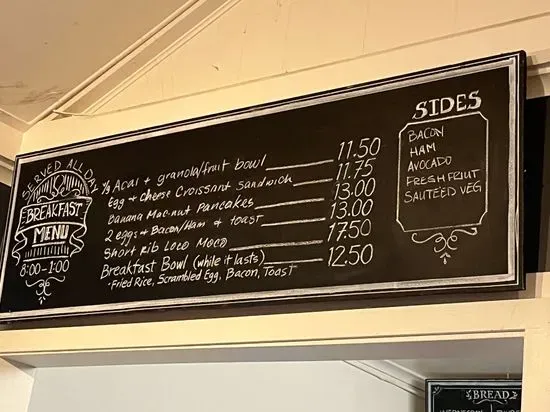 SERVED ALL DAY
BREAKFAST
MENU
8:00-1:00
½ Acai + granola/fruit bowl 11.50
Egg & Cheese Croissant Sandwich 11.75
Banana Mac-nut Pancakes 13.00
2 eggs & Bacon/Ham & toast 13.00
Short Rib Loco Moco 17.50
Breakfast Bowl (while it lasts) 12.50
*Fried Rice, Scrambled Egg, Bacon, Toast
SIDES
BACON
HAM
AVOCADO
FRESH FRIUT
SAUTEED VEG
BREAD